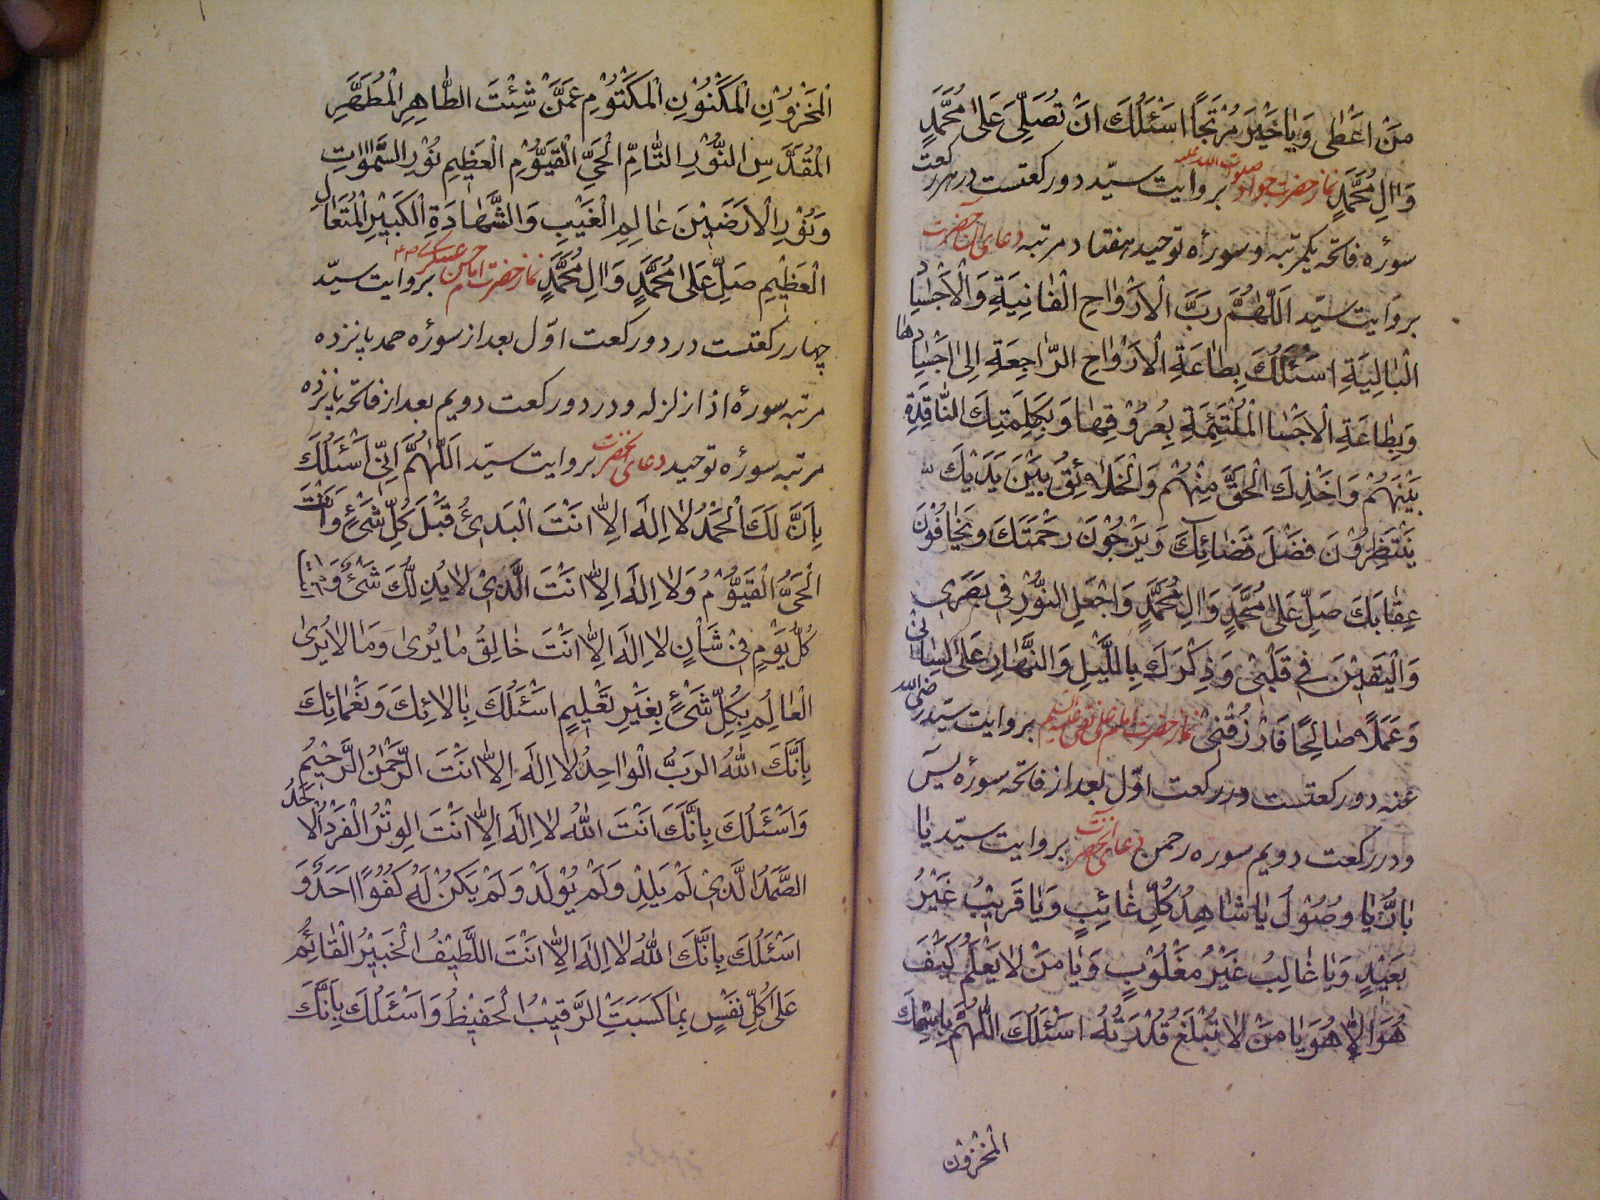 مَنْ اَعْطٰى وَيٰا خَيْرَ مُرْتَجًا اَسْئَلُكَ اَنْ تُصَلِّىَ عَلٰى مُحَمَّدٍ
وَاٰلِ مُحَمَّدٍ نماز حضرت جواد صلوات الله عليه بروايت سيّد دو ركعتست در هر ركعت
سورهٔ فاتحه يكمرتبه و سورهٔ توحيد هفتاد مرتبه دعاى آن حضرت
بروايت سيّد اَللّٰهُمَّ رَبَّ الْاَرْوٰاحِ الْفٰانِيَةِ وَالْاَجْسٰادِ
الْبٰالِيَةِ اَسْئَلُكَ بِطٰاعَةِ الْاَرْوٰاحِ الرّٰاجِعَةِ اِلىٰ اَجْسٰادِهٰا
وَبِطٰاعَةِ الْاَجْسٰا الْمُلْتَئِمَةِ بِعُرُوْقِهٰا وَبِكَلِمَتِكَ النّٰافِذَةِ
بَيْنَهُمْ وَاَخْذِكَ الْحَقَّ مِنْهُمْ وَالْخَلاٰئِقُ بَيْنَ يَدَيْكَ
يَنْتَظِرُوْنَ فَصْلَ قَضٰائِكَ وَيَرْجُوْنَ رَحْمَتَكَ وَيَخٰافُوْنَ
عِقٰابَكَ صَلِّ عَلىٰ مُحَمَّدٍ وَاٰلِ مُحَمَّدٍ وَاجْعَلِ النُّوْرَ فِى بَصَرِى
وَالْيَقِيْنَ فِى قَلْبِىْ وَذِكْرَكَ بِاللَّيْلِ وَالنَّهٰارِ عَلىٰ لِسٰانِى
وَعَمَلًا صٰالِحًا فَارْزُقْنِىْ نماز حضرت امام على نقى عليه السلام بروايت سيّد رضى الله
عنه دو ركعتست در ركعت اوّل بعد از فاتحه سورهٔ يس
و در ركعت دويم سوره رحمن دعاى آنحضرت بروايت سيّد يٰا
بٰارُّ يٰا وَصُوْلُ يٰا شٰاهِدُ كُلِّ غٰائِبٍ وَيٰا قَرِيْبُ غَيْرُ
بَعِيْدٍ وَيٰا غٰالِبُ غَيْرُ مَغْلُوْبٍ وَيٰا مَنْ لاٰ يَعْلَمُ كَيْفَ
هُوَ اِلاّٰ هُوَ يٰا مَنْ لاٰ تُبْلَغُ قُدْرَتُهُ اَسْئَلُكَ اللّٰهُمَّ بِاسْمِكَ
المخزون
الْمَخْزُوْنِ الْمَكْنُوْنِ الْمَكْتُوْمِ عَمَّنْ شِئْتَ الطّٰاهِرِ الْمُطَهَّرِ
الْمُقَدَّسِ النُّوْرِ التّٰامِّ الْحَىِّ الْقَيُّوْمِ الْعَظِيْمِ نُوْرِ السَّمٰوٰاتِ
وَنُوْرِ الْاَرَضَيْنَ عٰالِمِ الْغَيْبِ وَالشَّهٰادَةِ الْكَبِيْرِ الْمُتَعٰالِ
الْعَظِيْمِ صَلِّ عَلىٰ مُحَمَّدٍ وَاٰلِ مُحَمَّدٍ نماز حضرت امام حسن عسكرى بروايت سيّد
چهار ركعتست در دو ركعت اوّل بعد از سورهٔ حمد پانزده
مرتبه سورهٔ اذا زلزله و در دو ركعت دويم بعد از فاتحه پانزده
مرتبه سورهٔ توحيد دعاى آنحضرت بروايت سيّد اَللّٰهُمَّ اِنِّى اَسْئَلُكَ
بِاَنَّ لَكَ الْحَمْدُ لاٰ اِلٰهَ اِلاّٰ اَنْتَ الْبَدِىْءُ قَبْلَ كُلِّ شَىْءٍ وَاَنْتَ
الْحَىُّ الْقَيُّوْمُ وَلاٰ اِلٰهَ اِلاّٰ اَنْتَ الَّذِىْ لاٰ يُذِلُّكَ شَىْءٌ وَاَنْتَ
كُلَّ يَوْمٍ فِىْ شَأْنٍ لاٰ اِلٰهَ اِلاّٰ اَنْتَ خٰالِقُ مٰا يُرىٰ وَمٰا لاٰ يُرىٰ
الْعٰالِمُ بِكُلِّ شَىْءٍ بِغَيْرِ تَعْلِيْمٍ اَسْئَلُكَ بِاٰلاٰئِكَ وَنَعْمٰائِكَ
بِاَنَّكَ اللّٰهُ الرَبُّ الْوٰاحِدُ لاٰ اِلٰهَ اِلاّٰ اَنْتَ الرَّحْمٰنُ الرَّحِيْمُ
وَاَسْئَلُكَ بِاَنَّكَ اَنْتَ اللّٰهُ لاٰ اِلٰهَ اِلاّٰ اَنْتَ الوِتْرُ الْفَرْدُ الْاَحَدُ
الصَّمَدُ الَّذِىْ لَمْ يَلِدْ وَلَمْ يُوْلَدْ وَلَمْ يَكُنْ لَهُ كُفُوًا اَحَدٌ وَ
اَسْئَلُكَ بِاَنَّكَ اللّٰهُ لاٰ اِلٰهَ اِلاّٰ اَنْتَ اللَّطِيْفُ الْخَبِيْرُ الْقٰائِمُ
عَلىٰ كُلِّ نَفْسٍ بِمٰا كَسَبَتِ الرَّقِيْبُ الْحَفِيْظُ وَاَسْئَلُكَ بِاَنَّكَ